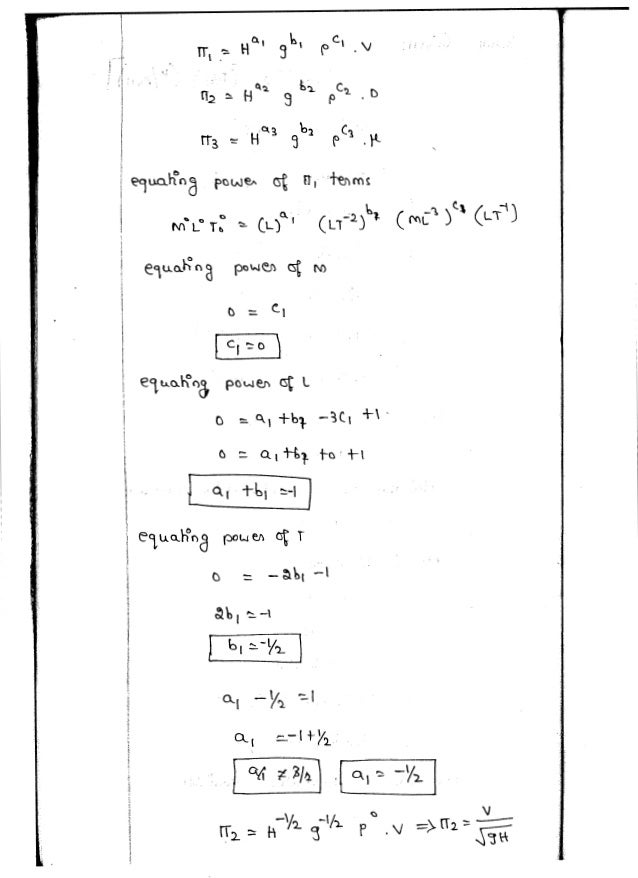 π₁ = H^a₁ g^b₁ ρ^c₁ . V
π₂ = H^a₂ g^b₂ ρ^c₂ . D
π₃ = H^a₃ g^b₃ ρ^c₃ . μ
equating power of π₁ terms
M⁰L⁰T⁰ = (L)^a₁ (LT⁻²)^b₁ (ML⁻³)^c₁ (LT⁻¹)
equating power of M
0 = c₁
c₁ = 0
equating power of L
0 = a₁ + b₁ - 3c₁ + 1
0 = a₁ + b₁ + 0 + 1
a₁ + b₁ = -1
equating power of T
0 = -2b₁ - 1
2b₁ = -1
b₁ = -1/2
a₁ - 1/2 = 1
a₁ = -1 + 1/2
a₁ ≠ 3/2 a₁ = -1/2
π₂ = H^-1/2 g^-1/2 ρ⁰ . V ⇒ π₂ = V/√gH